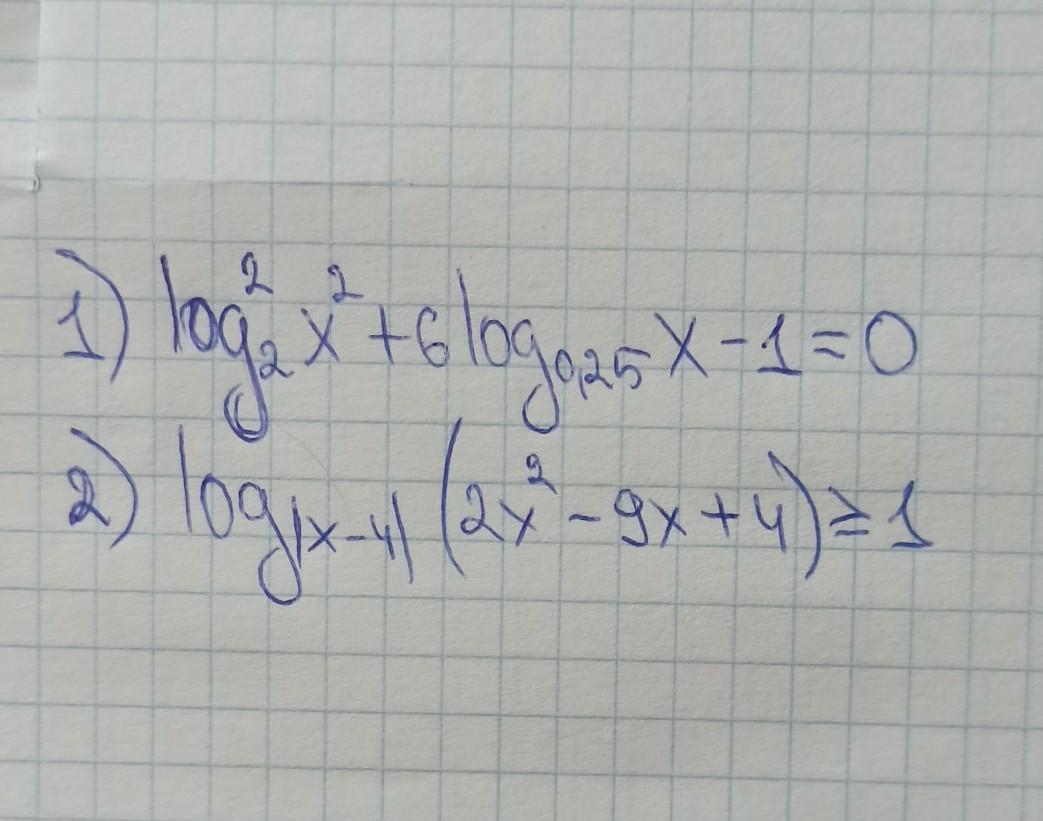 1) log₂² x² + 6 log₀,₂₅ x - 1 = 0
2) log|ₓ₋₄| (2x² - 9x + 4) ≥ 1